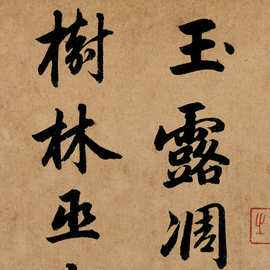 玉露凋
樹林巫